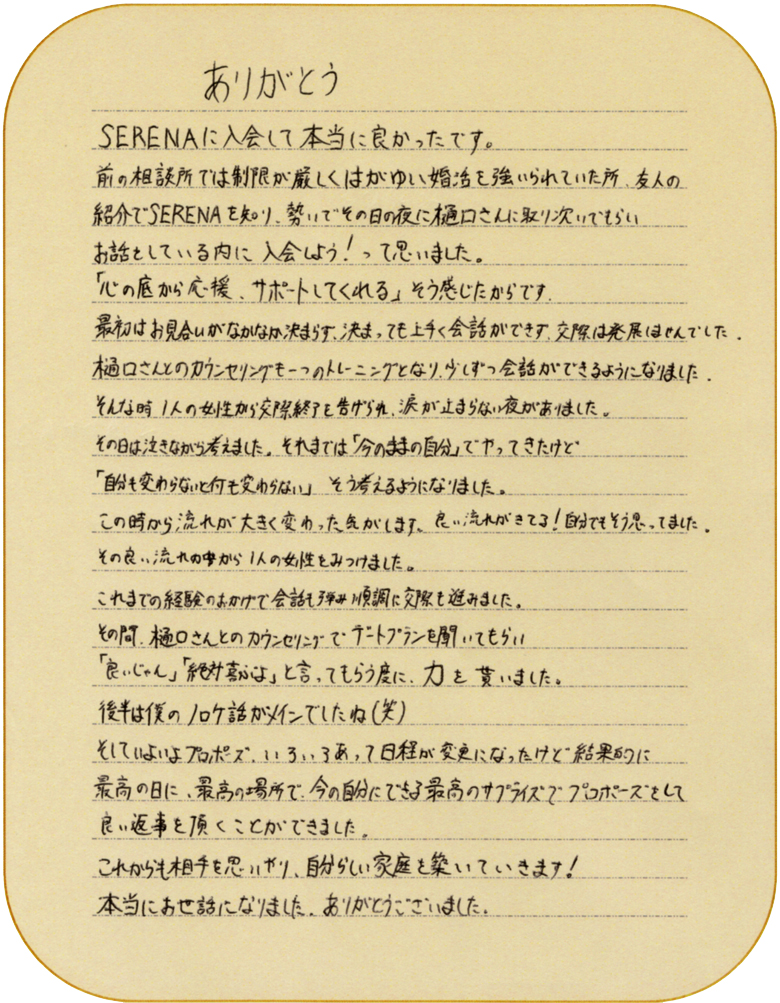 ありがとう
SERENAに入会して本当に良かったです。
前の相談所では制限が厳しくはがゆい婚活を強いられていた所、友人の
紹介でSERENAを知り、勢いでその日の夜に樋口さんに取り次いでもらい
お話をしている内に入会しよう!って思いました。
「心の底から応援、サポートしてくれる」そう感じたからです.
最初はお見合いがなかなか決まらず、決まっても上手く会話ができず、交際は発展しませんでした.
樋口さんとのカウンセリングも一つのトレーニングとなり、少しずつ会話ができるようになりました.
そんな時1人の女性から交際終了を告げられ、涙が止まらない夜がありました。
その日は泣きながら考えました。それまでは「今のままの自分」でやってきたけど
「自分も変わらないと何も変わらない」そう考えるようになりました。
この時から流れが大きく変わった気がします、良い流れがきてる!自分でもそう思ってました.
その良い流れの中から1人の女性をみつけました。
これまでの経験のおかげで会話も弾み順調に交際も進みました。
その間、樋口さんとのカウンセリングでデートプランを聞いてもらい
「良いじゃん」「絶対喜ぶよ」と言ってもらう度に、力を貰いました。
後半は僕のノロケ話がメインでしたね(笑)
そしていよいよプロポーズ、いろいろあって日程が変更になったけど結果的に
最高の日に、最高の場所で、今の自分にできる最高のサプライズでプロポーズをして
良い返事を頂くことができました。
これからも相手を思いやり、自分らしい家庭を築いていきます!
本当にお世話になりました。ありがとうございました。